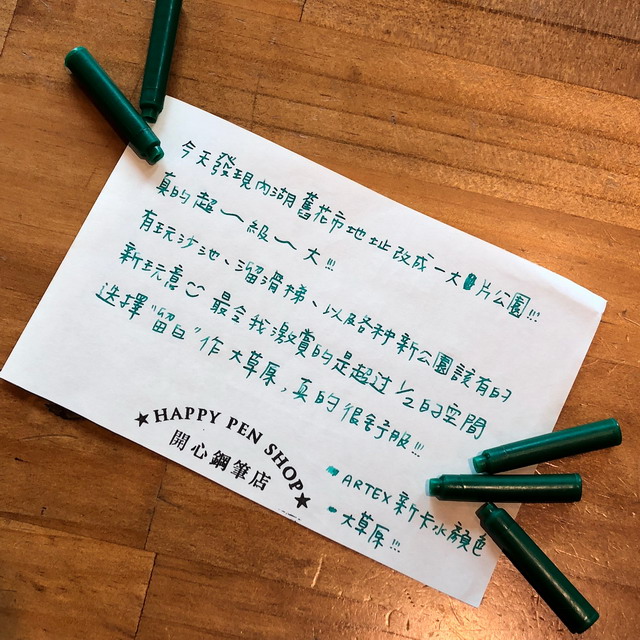 今天發現內湖舊花市地址改成一大片公園!!!
真的超~級~大!!!
有玩沙池、溜滑梯、以及各種新公園該有的
新玩意☺ 最令我激賞的是超过1/2的空間
選擇"留白"作大草原,真的很舒服!!!
★HAPPY PEN SHOP★
開心鋼筆店
ARTEX新卡水顏色
大草原!!!